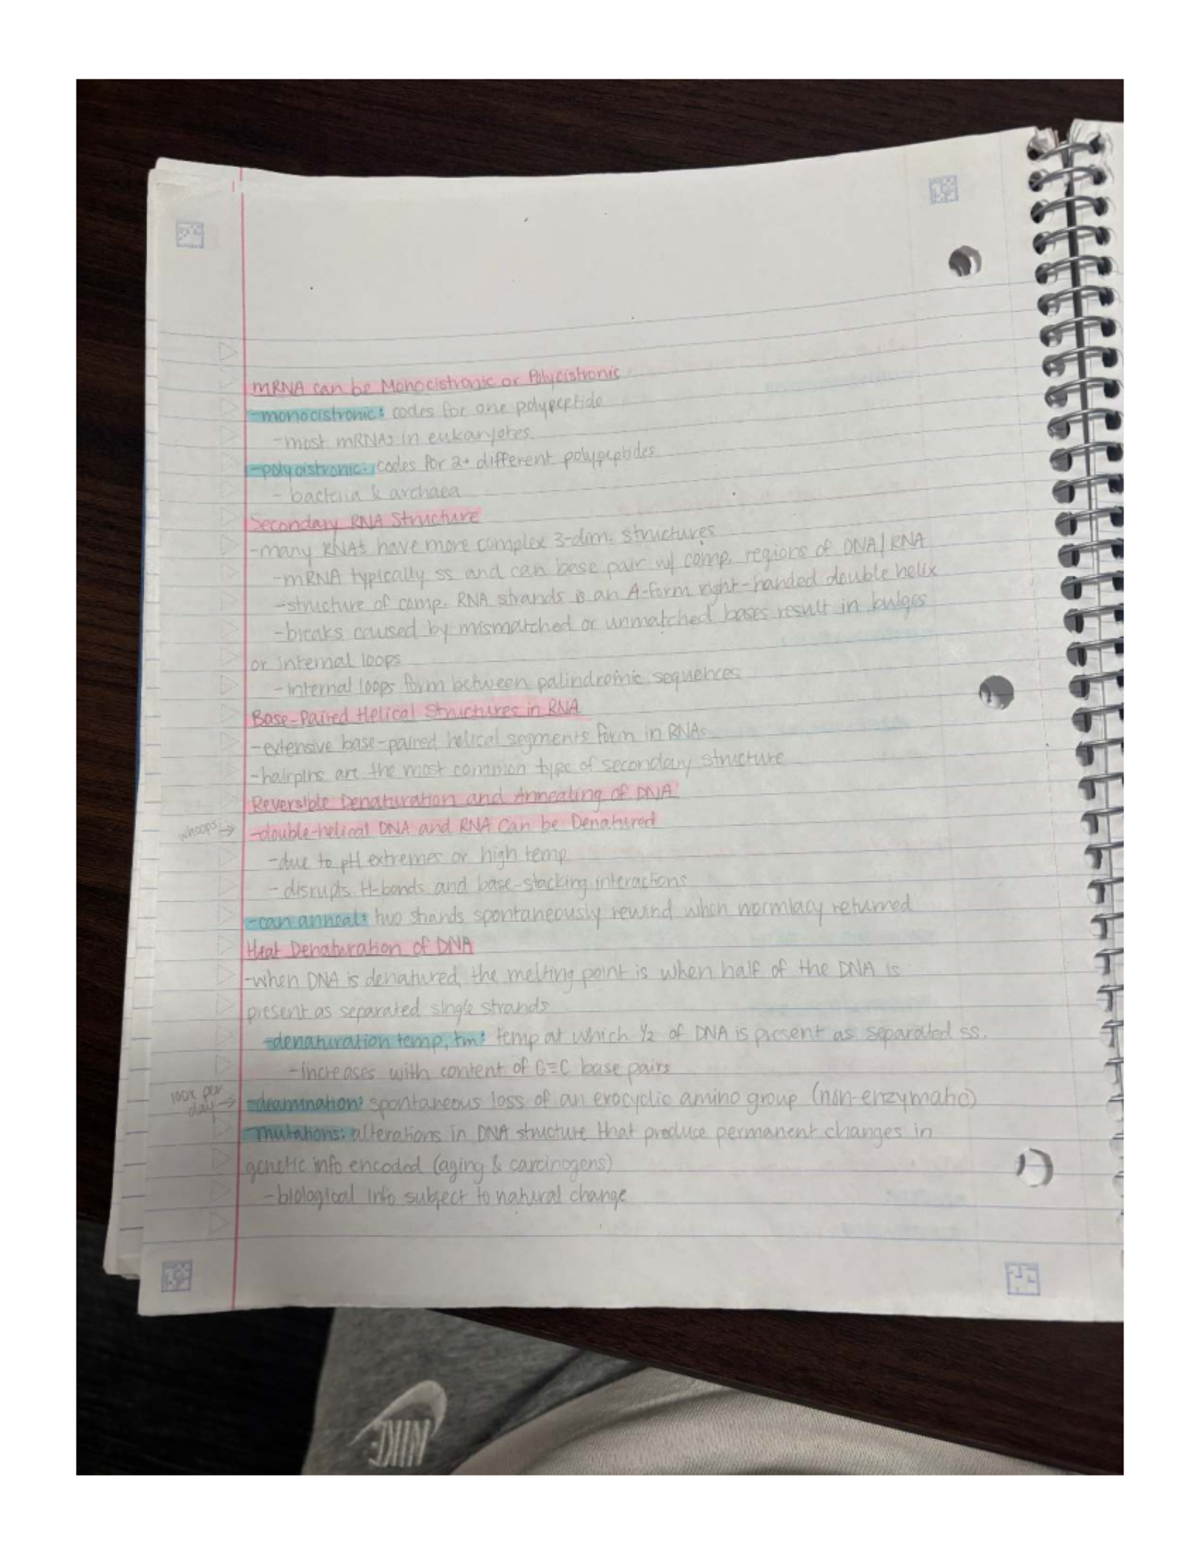 mRNA can be Monocistronic or Polycistronic
-monocistronic: codes for one polypeptide
-most mRNAs in eukaryotes
-polycistronic: codes for 2+ different polypeptides
- bacteria & archaea
Secondary RNA Structure
-many RNAs have more complex 3-dim. structures
-mRNA typically ss and can base pair w/ comp. regions of DNA/RNA
-structure of comp. RNA strands is an A-form right-handed double helix
-breaks caused by mismatched or unmatched bases result in bulges
or internal loops
-internal loops form between palindromic sequences
Base-Paired Helical Structures in RNA
-extensive base-paired helical segments form in RNAs
-hairpins are the most common type of secondary structure
Reversible Denaturation and Annealing of DNA
whoops →
-double-helical DNA and RNA can be Denatured
-due to pH extremes or high temp
- disrupts H-bonds and base-stacking interactions
-can anneal: two strands spontaneously rewind when normlacy returned
Heat Denaturation of DNA
-when DNA is denatured, the melting point is when half of the DNA is
present as separated single strands
-denaturation temp, tm: temp at which ½ of DNA is present as separated ss.
-increases with content of G≡C base pairs
100x per
day →
-deamination: spontaneous loss of an exocyclic amino group (non-enzymatic)
mutations: alterations in DNA structure that produce permanent changes in
genetic info encoded (aging & carcinogens)
-biological info subject to natural change
NIKE